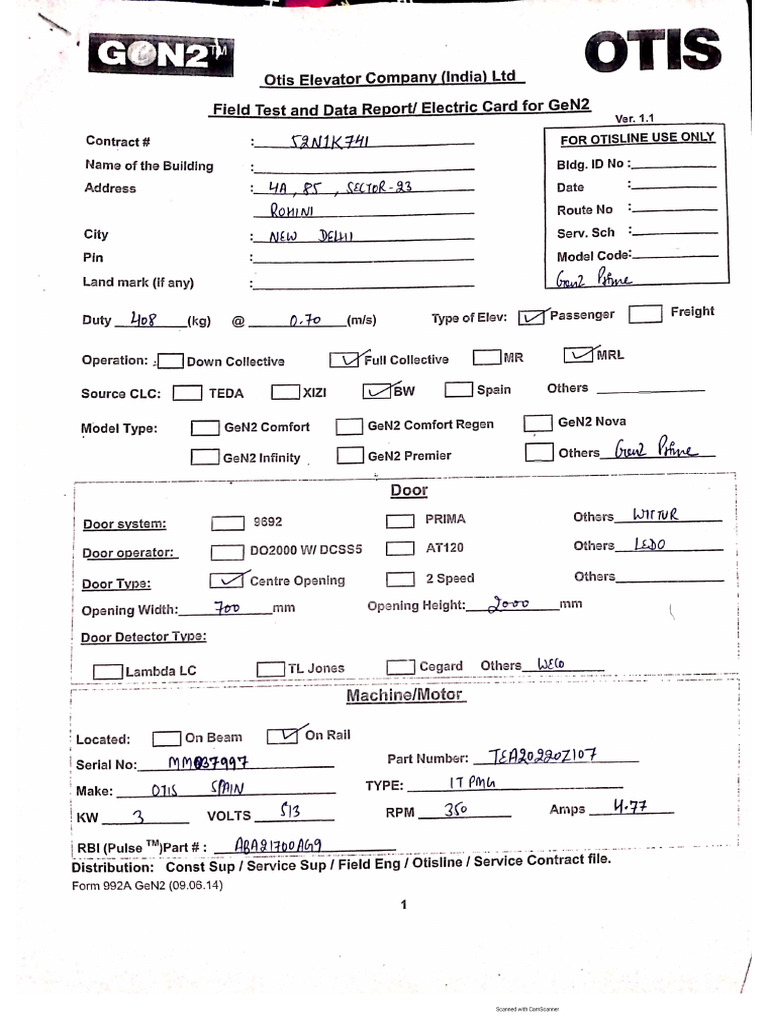 GeN2™
OTIS
Otis Elevator Company (India) Ltd
Field Test and Data Report/ Electric Card for GeN2
Ver. 1.1
Contract # : 52N1K741
Name of the Building :
Address : 4A, 85, SECTOR-23
ROHINI
City : NEW DELHI
Pin :
Land mark (if any) :
FOR OTISLINE USE ONLY
Bldg. ID No :
Date :
Route No :
Serv. Sch :
Model Code:
Gen2 Prime
Duty 408 (kg) @ 0.70 (m/s) Type of Elev: ✓ Passenger Freight
Operation: : Down Collective ✓ Full Collective MR ✓ MRL
Source CLC: TEDA XIZI ✓ BW Spain Others
Model Type: GeN2 Comfort GeN2 Comfort Regen GeN2 Nova
GeN2 Infinity GeN2 Premier Others Gen2 Prime
Door
Door system: 9692 PRIMA Others WITTUR
Door operator: DO2000 W/ DCSS5 AT120 Others LEDO
Door Type: ✓ Centre Opening 2 Speed Others
Opening Width: 700 mm Opening Height: 2000 mm
Door Detector Type:
Lambda LC TL Jones Cegard Others WECO
Machine/Motor
Located: On Beam ✓ On Rail
Serial No: MM037997 Part Number: TEA20220Z107
Make: OTIS SPAIN TYPE: IT PMG
KW 3 VOLTS 513 RPM 350 Amps 4.77
RBI (Pulse ™)Part # : ABA21700AG9
Distribution: Const Sup / Service Sup / Field Eng / Otisline / Service Contract file.
Form 992A GeN2 (09.06.14)
1
Scanned with CamScanner